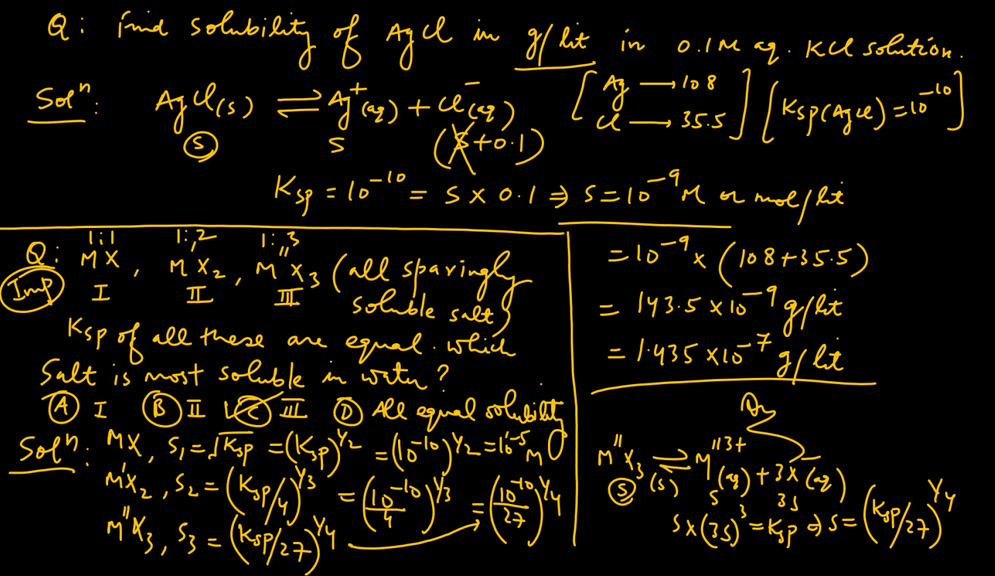 Q: Find solubility of AgCl in g/lit in 0.1M aq. KCl solution.
Solⁿ: AgCl(s) ⇌ Ag⁺(aq) + Cl⁻(aq) [Ag → 108 Cl → 35.5] [Ksp(AgCl) = 10⁻¹⁰]
S S (S+0.1)
Ksp = 10⁻¹⁰ = S × 0.1 ⇒ S = 10⁻⁹ M or mol/lit
= 10⁻⁹ × (108+35.5)
= 143.5 × 10⁻⁹ g/lit
= 1.435 × 10⁻⁷ g/lit
1:1 1:2 1:3
Q: MX, M'X₂, M''X₃ (all sparingly
Imp I II III soluble salt)
Ksp of all these are equal. which
Salt is most soluble in water?
(A) I (B) II (C) III (D) All equal solubility
Solⁿ: MX, S₁ = √Ksp = (Ksp)^1/2 = (10⁻¹⁰)^1/2 = 10⁻⁵ M
M'X₂, S₂ = (Ksp/4)^1/3 = (10⁻¹⁰/4)^1/3 = (10⁻¹⁰/27)^1/4
M''X₃, S₃ = (Ksp/27)^1/4
M''X₃(s) ⇌ M''³⁺(aq) + 3X⁻(aq)
S S 3S
S×(3S)³ = Ksp ⇒ S = (Ksp/27)^1/4